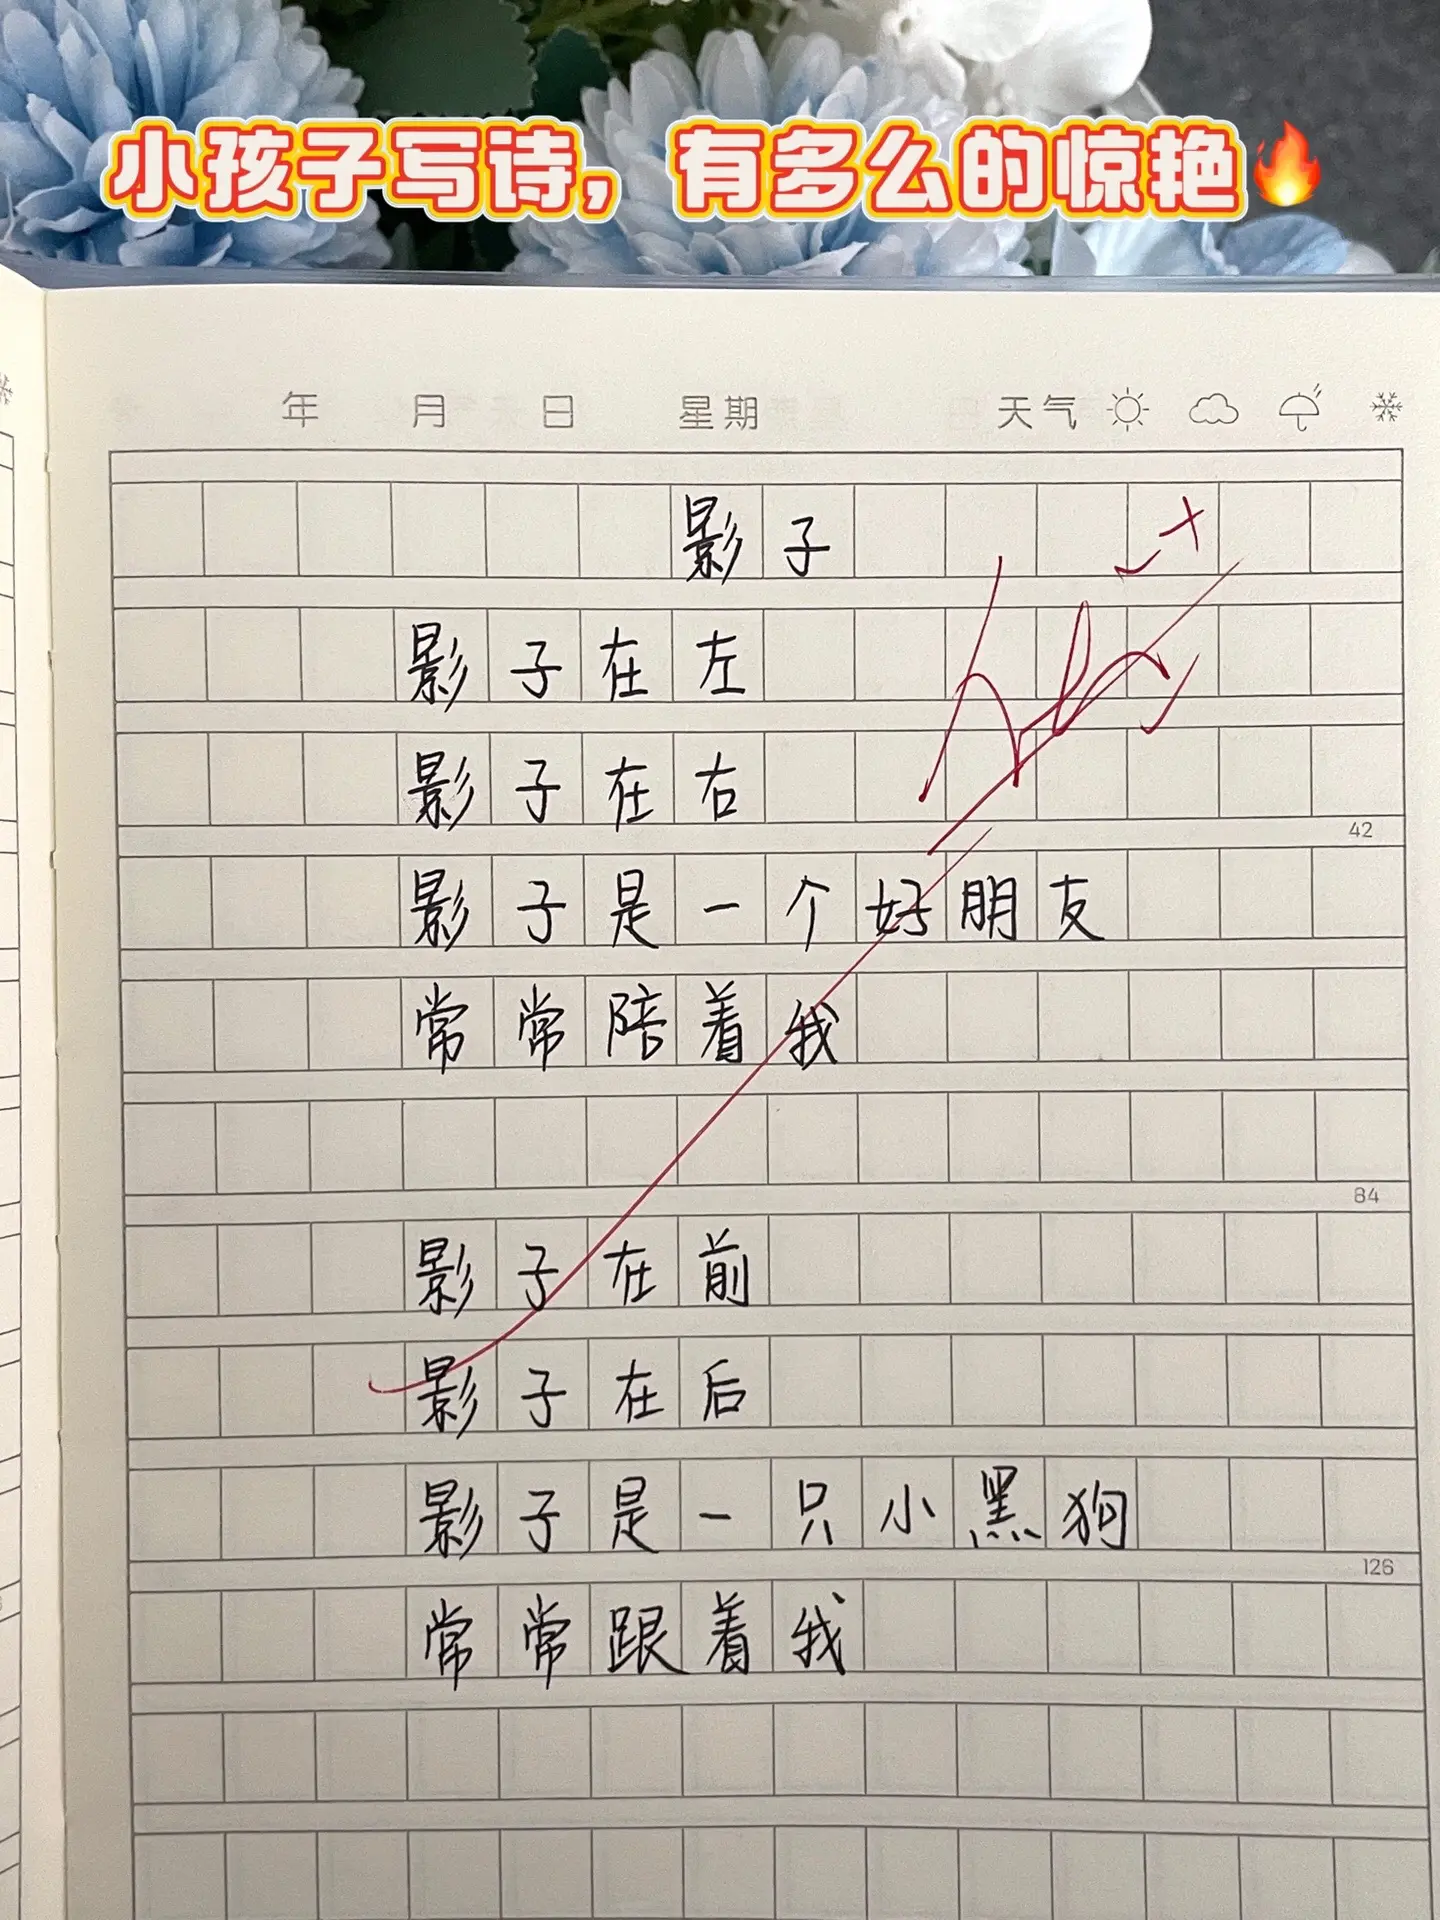 小孩子写诗，有多么的惊艳🔥
年 月 日 星期 天气
影子
影子在左
影子在右
42
影子是一个好朋友
常常陪着我
84
影子在前
影子在后
影子是一只小黑狗
126
常常跟着我